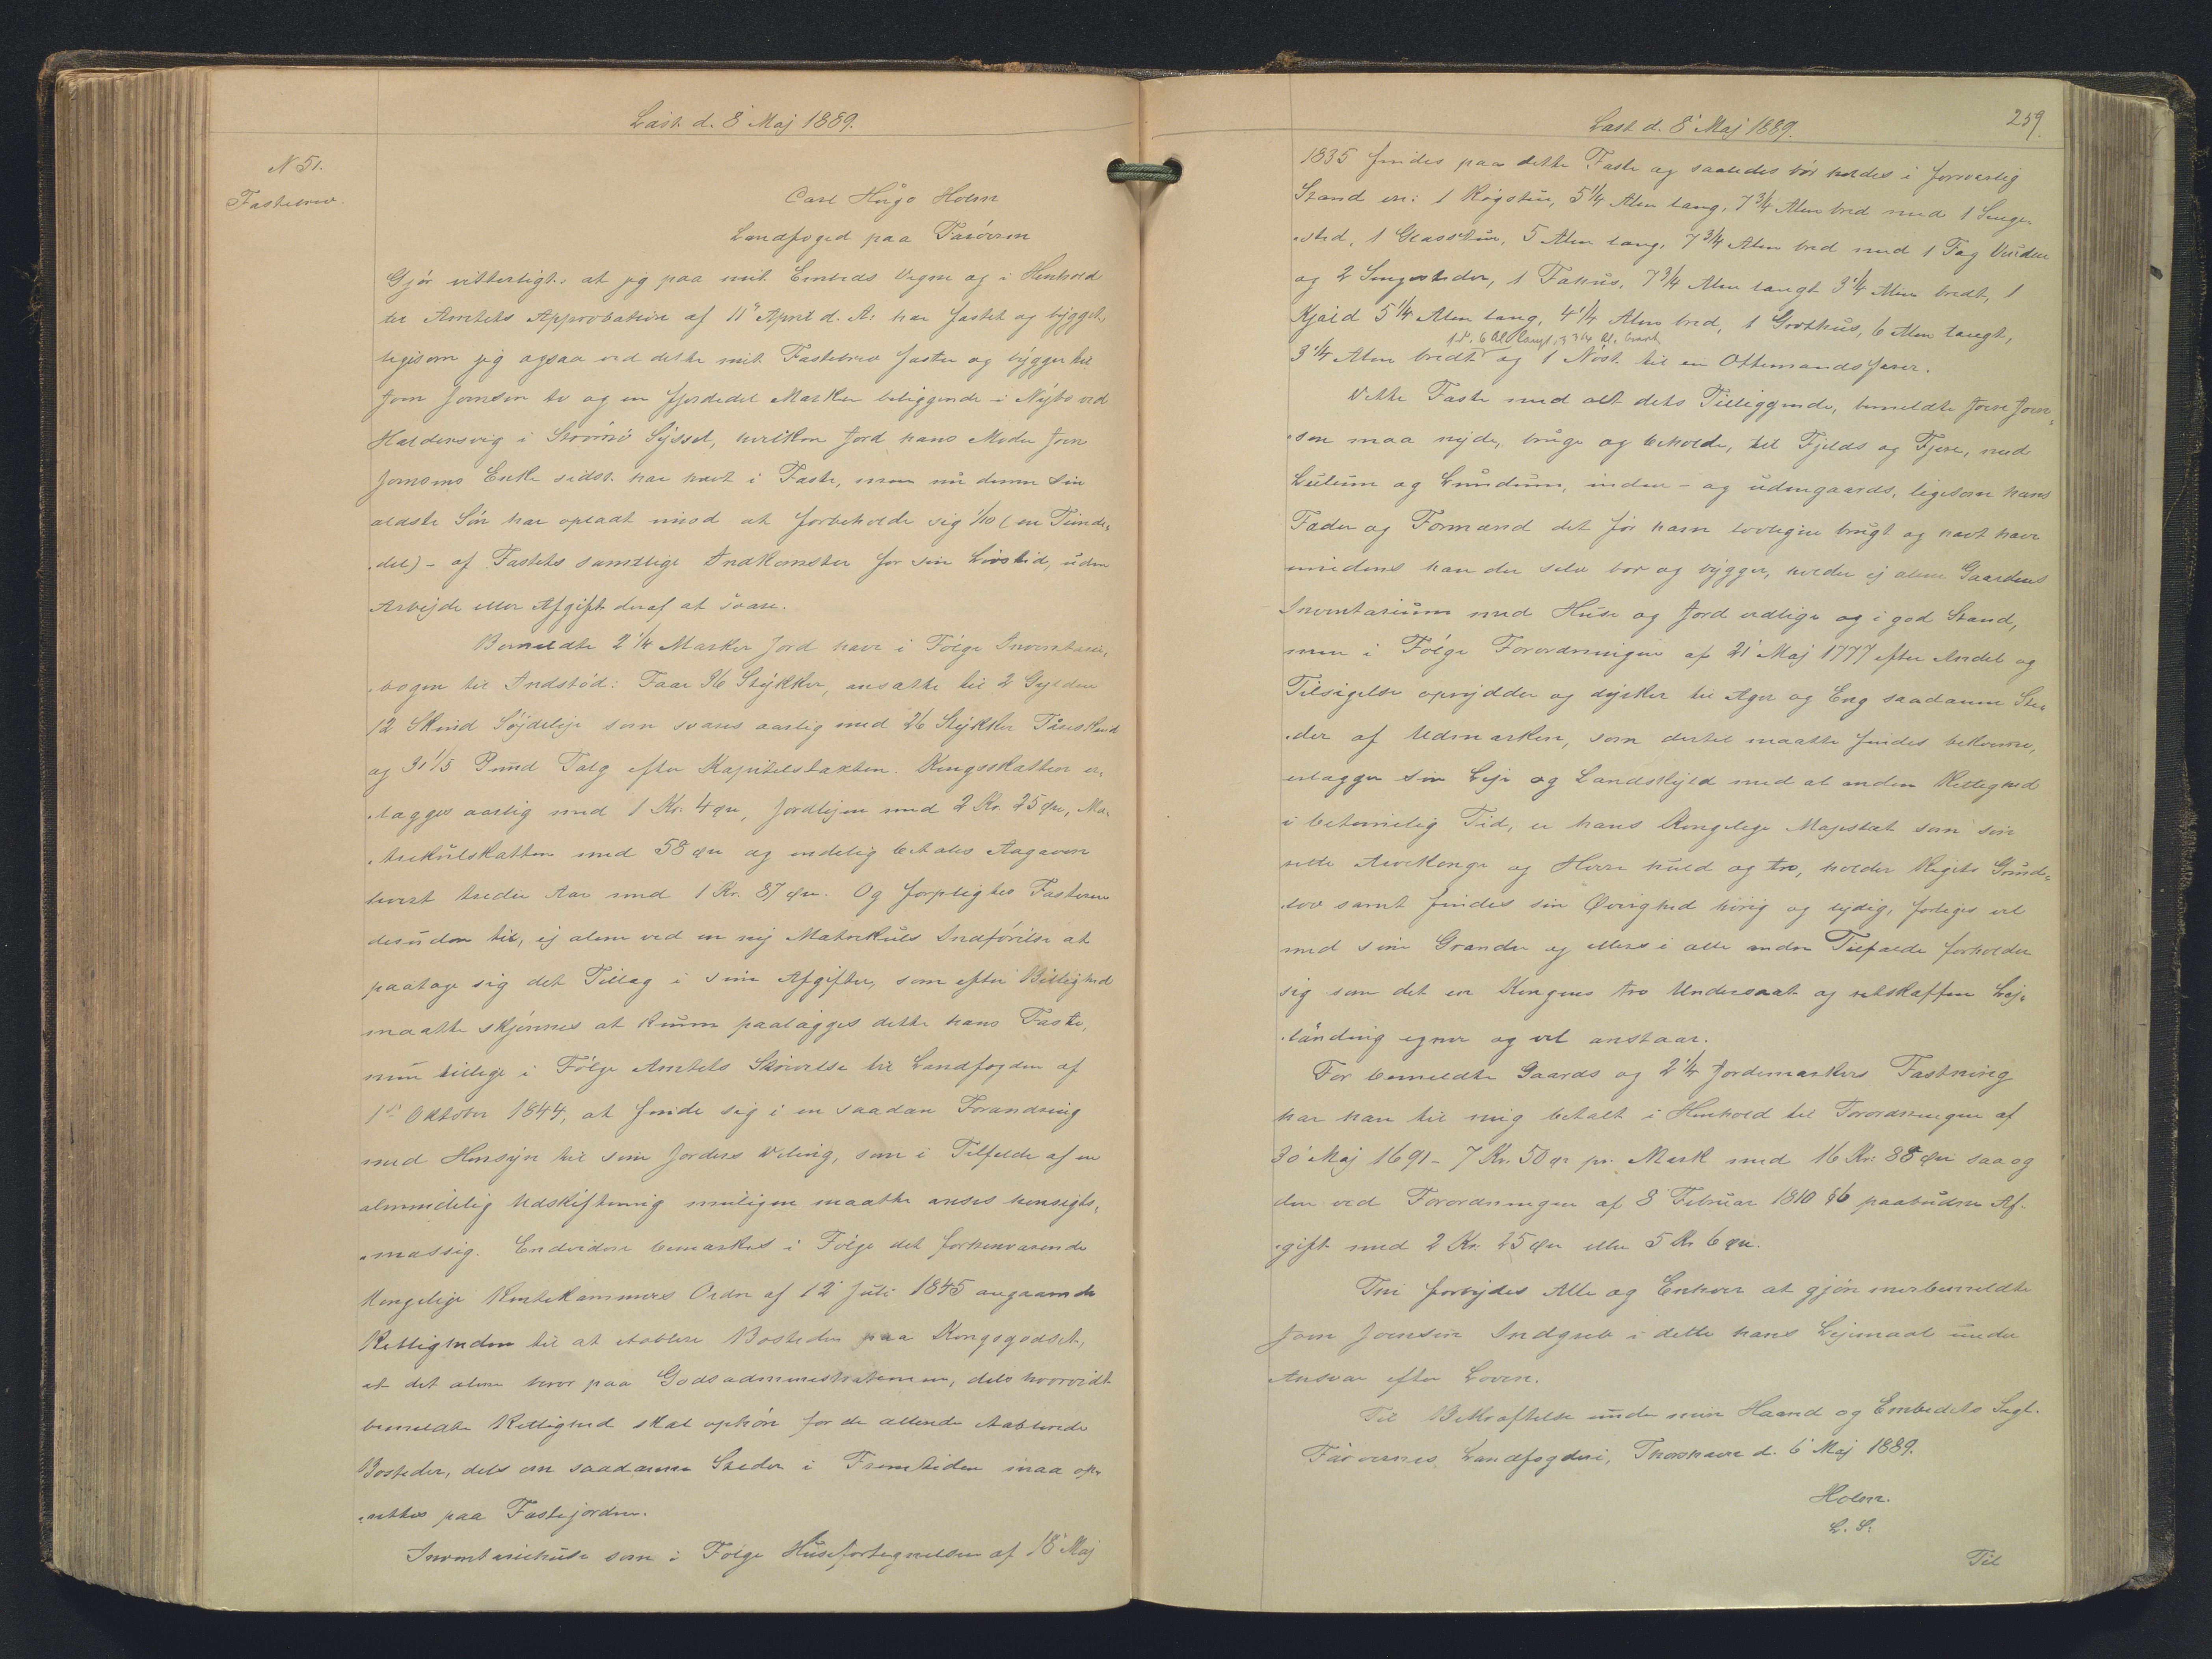 Læst d. 8' Maj 1889.
N 51.
Fæstebrev.
Carl Hugo Holm
Landfoged paa Færöerne
Gjör vitterligt: at jeg paa mit Embeds Vegne og i Henhold
til Amtets Approbation af 11" April d. A. har fæstet og bygget,
ligesom jeg ogsaa ved dette mit Fæstebrev fæster og bygger til
Joen Joensen to og en fjerdedel Marker beliggende i Nybo ved
Haldersvig i Strömö Syssel, hvilken Jord hans Moder Joen
Joensens Enke sidst har havt i Fæste, men nu denne sin
ældste Sön har opladt imod at forbeholde sig 1/10 (en Tiende-
-del) - af Fæstets samtlige Indkomster for sin Livstid, uden
Arbejde eller Afgift deraf at svare.
Bemeldte 2 1/4 Marker Jord have i Fölge Inventarie-
-bogen til Indstöd: Faar 36 Stykker, ansatte til 2 Gylden
12 Skind Söjdeleje som svares aarlig med 26 Stykker Faareskind
og 31 1/5 Pund Talg efter Kapitelstaxten. Kongsskatten er-
-lægges aarlig med 1 Kr. 4 Øre, Jordlejen med 2 Kr. 25 Øre, Ma-
-trikulskatten med 58 Øre og endelig betales Aagaven
hvert tredie Aar med 1 Kr. 87 Øre. Og forpligtes Fæsteren
desuden til, ej alene ved en ny Matrikuls Indförelse at
paatage sig det Tillæg i sine Afgifter, som efter Billighed
maatte skjönnes at kunne paalægges dette hans Fæste,
men tillige i Fölge Amtets Skrivelse til Landfogden af
1ste Oktober 1844, at finde sig i en saadan Forandring
med Hensyn til sine Jorders Deling, som i Tilfælde af en
almindelig Udskiftning muligen maatte anses hensigts-
-mæssig. Endvidere bemærkes i Fölge det forhenværende
Kongelige Rentekammers Ordre af 12' Juli 1845 angaaende
Rettigheden til at etablere Bosteder paa Kongsgodset,
at det alene beror paa Godsadministrationen, dels hvorvidt
bemeldte Rettighed skal ophöre for de allerede etablerede
Bosteder, dels om saadanne Steder i Fremtiden maa op-
-rettes paa Fæstejorden.
Inventariehuse som i Fölge Husefortegnelsen af 18' Maj
Læst d. 8' Maj 1889.
259.
1835 findes paa dette Fæste og saaledes bör holdes i forsvarlig
Stand ere: 1 Rögstue, 5 1/4 Alen lang, 7 3/4 Alen bred med 1 Senge-
-sted, 1 Glasstue, 5 Alen lang, 7 3/4 Alen bred med 1 Fag Vinduer
og 2 Sengesteder, 1 Fæhus, 7 3/4 Alen langt 3 1/4 Alen bredt, 1
Kjald 5 1/4 Alen lang, 4 1/4 Alen bred, 1 Grothus, 6 Alen langt,
1 do. 6 Al. langt, 3 3/4 Al. bredt
3 1/4 Alen bredt og 1 Nöst til en Ottemandsfarer.
Dette Fæste med alt dets Tilliggende, bemeldte Joen Joen-
-sen maa nyde, bruge og beholde, til Fjelds og Fjære, med
Lutum og Lundum, inden- og udengaards, ligesom hans
Fader og Formænd det för ham lovligen brugt og havt have
imidens han der selv bor og bygger, holder ej alene Gaardens
Inventarium med Huse og Jord vedlige og i god Stand,
men i Fölge Forordningen af 21' Maj 1777 efter Andel og
Tilsigelse oprydder og dyrker til Ager og Eng saadanne Ste-
-der af Udmarken, som dertil maatte findes bekvemme,
erlægger sin Leje og Landskyld med al anden Rettighed
i betimelig Tid, er hans Kongelige Majestæt som sin
rette Arvekonge og Herre huld og tro, holder Rigets Grund-
-lov samt findes sin Øvrighed hörig og lydig, forliges vel
med sine Grander og ellers i alle andre Tilfælde forholder
sig som det en Kongens tro Undersaat og retskaffen Lej-
-lænding egner og vel anstaar.
For bemeldte Gaards og 2 1/4 Jordemarkers Fæstning
har han til mig betalt i Henhold til Forordningen af
30' Maj 1691 - 7 Kr. 50 Ør pr. Mark med 16 Kr. 88 Øre saa og
den ved Forordningen af 8' Februar 1810 § 6 paabudne Af-
-gift med 2 Kr. 25 Øre eller 5 Kr. 6 Øre.
Thi forbydes Alle og Enhver at gjöre merbemeldte
Joen Joensen Indgreb i dette hans Lejemaal under
Ansvar efter Loven.
Til Bekræftelse under min Haand og Embedets Segl.
Færöernes Landfogderi, Thorshavn d. 6' Maj 1889.
Holm.
L. S.
Til